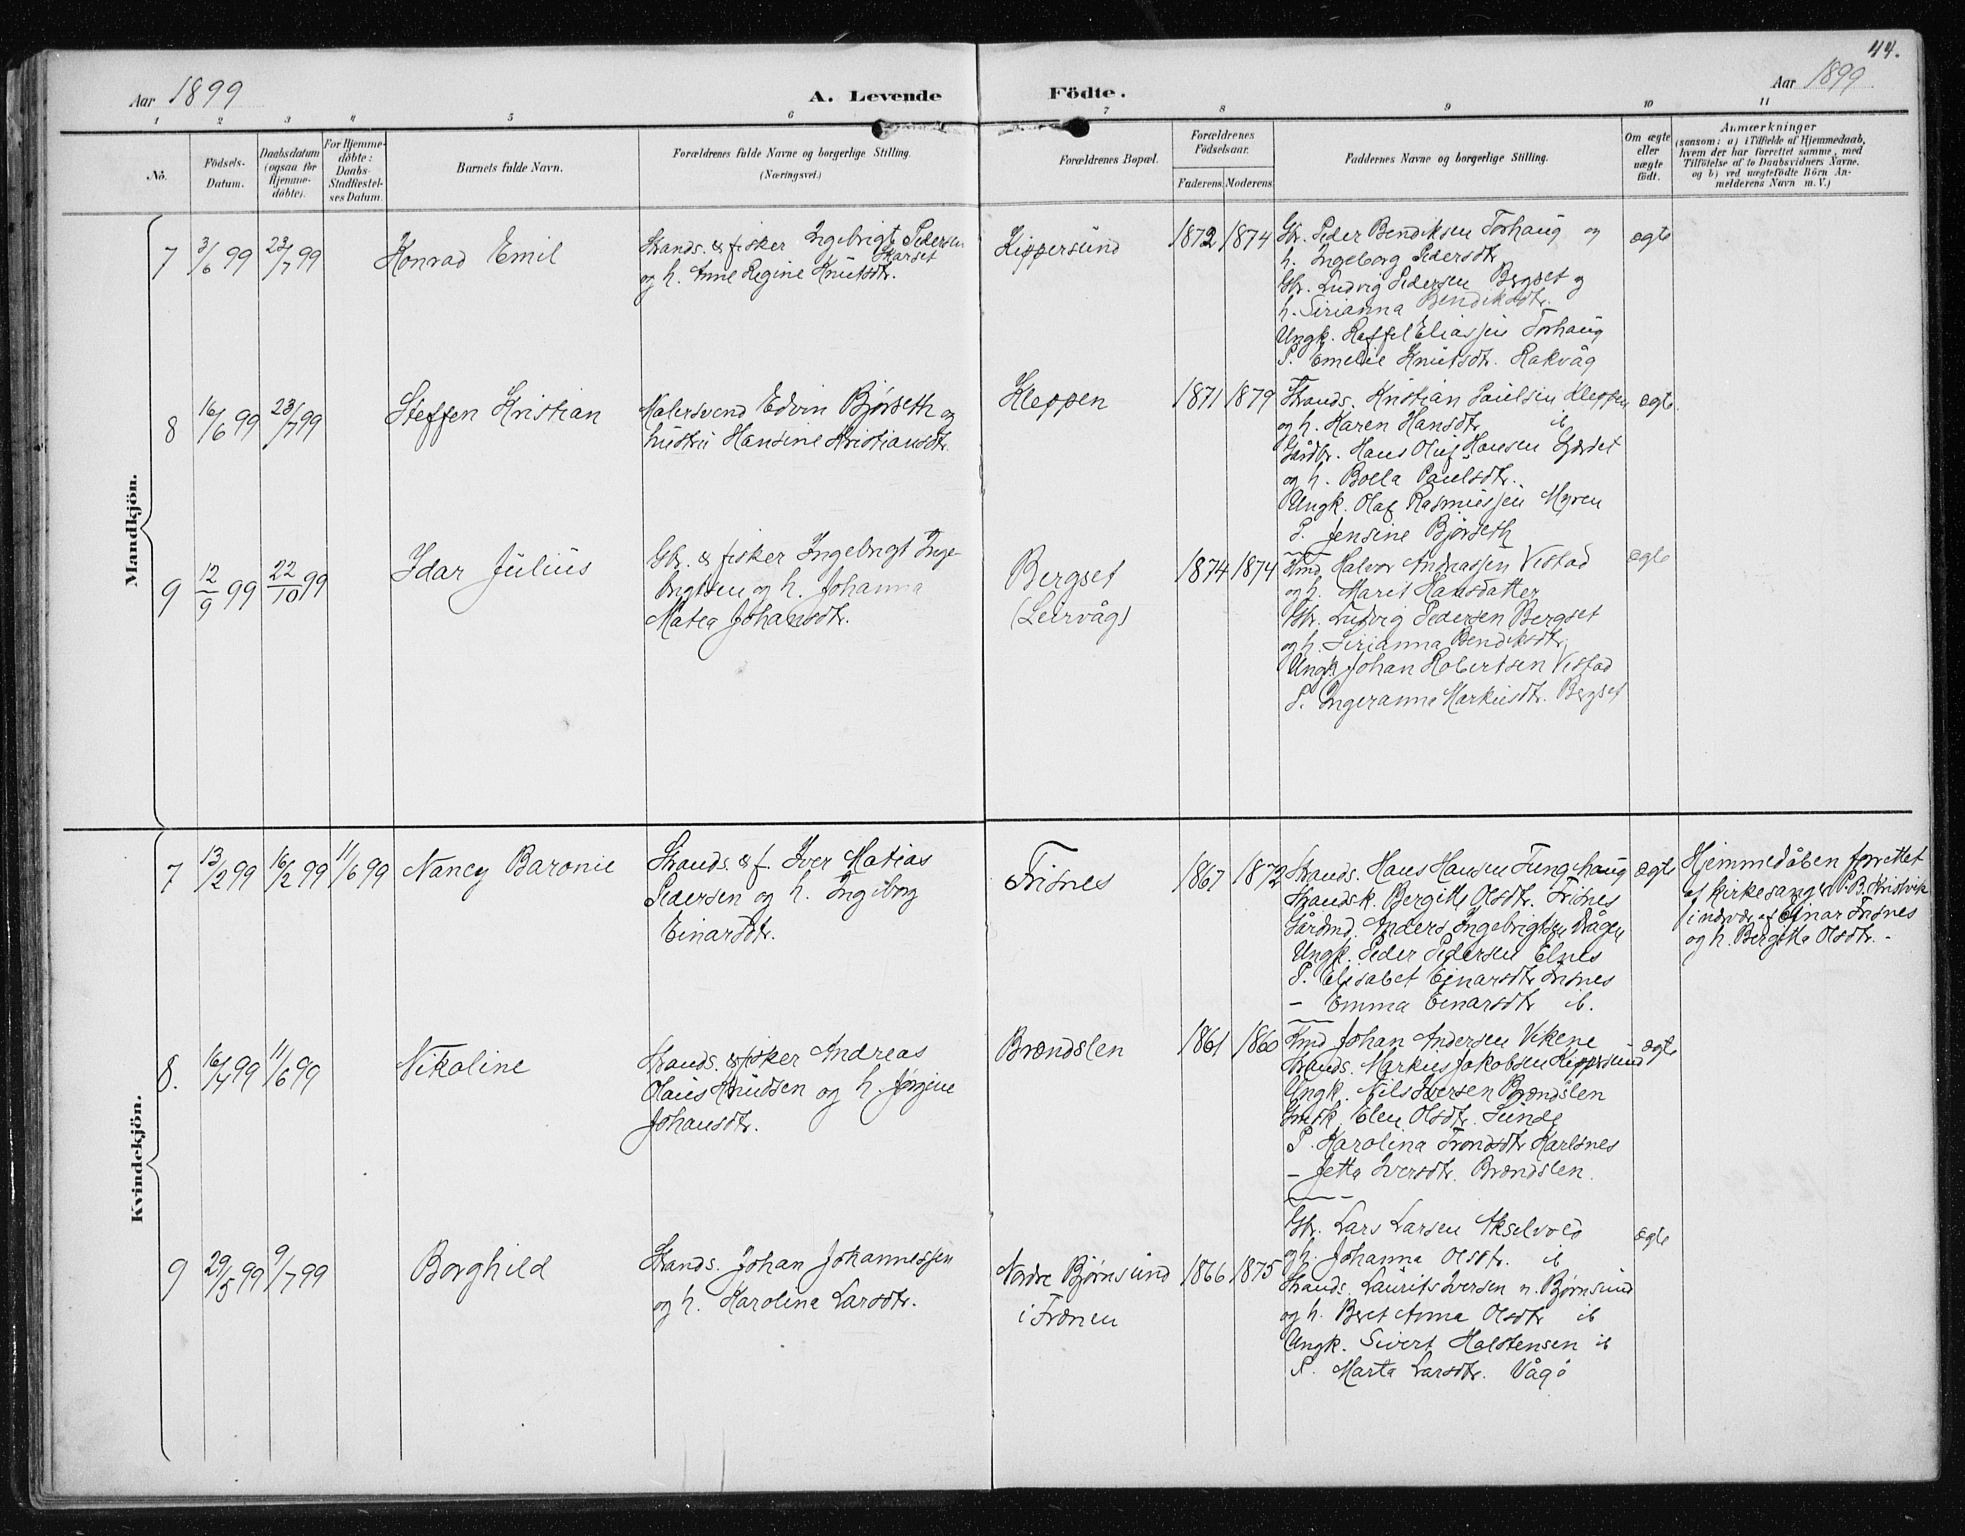 44.
Aar 1899
A. Levende
Födte.
Aar 1899
1 2 3 4 5 6 7 8 9 10 11
No.
Födsels-
Datum.
Daabsdatum
(ogsaa for
Hjemme-
döbte).
For Hjemme-
döbte:
Daabs-
Stadfæstel-
ses Datum.
Barnets fulde Navn.
Forældrenes fulde Navne og borgerlige Stilling.
(Næringsvei.)
Forældrenes Bopæl.
Forældrenes
Födselsaar.
Faderens. Moderens.
Faddernes Navne og borgerlige Stilling.
Om ægte
eller
uægte
födt.
Anmærkninger
(saasom: a) i Tilfælde af Hjemmedaab,
hvem der har forrettet samme, med
Tilföielse af to Daabsvidners Navne.
og b) ved uægtefödte Börn An-
melderens Navn m. V.)
Mandkjön.
7 3/6 99 23/7 99
Konrad Emil
Strands. & fisker Ingebrigt Pedersen
Harset
og h. Anne Regine Knutsdtr.
Kippersund
1872 1874
Gbr. Peder Bendiksen Torhaug og
h. Ingeborg Pedersdtr.
Gbr. Ludvig Pedersen Bergset og
h. Sirianna Bendiksdtr.
Ungk. Roffel Eliassen Torhaug
P. Emelie Knutsdtr. Rakvåg
ægte
8 16/6 99 23/7 99
Steffen Kristian
Malersvend Edvin Bjørseth og
hustru Hansine Kristiansdtr.
Kleppen
1871 1879
Strands. Kristian Paulsen Kleppen
og h. Karen Hansdtr. ib
Gårdbr. Hans Oluf Hansen Gjærdet
og h. Bolla Paulsdtr.
Ungk. Olaf Rasmussen Myren
P. Jensine Bjørseth
ægte
9 12/9 99 22/10 99
Idar Julius
Gbr. & fisker Ingebrigt Inge-
brigtsen og h. Johanna
Matea Johansdtr.
Bergset
(Leirvåg)
1874 1874
Kmd Halvor Andreassen Vestad
og h. Marit Hansdatter
Gbr. Ludvig Pedersen Bergset
og h. Sirianna Bendiksdtr.
Ungk. Johan Robertsen Vestad
P. Ingeranna Markusdtr. Bergset
ægte
Kvindekjön.
7 13/2 99 16/2 99 11/6 99
Nancy Baronie
Strands. & f. Iver Matias
Pedersen og h. Ingeborg
Einarsdtr.
Frisnes
1867 1872
Strands. Hans Hansen Tunghaug
Strandsk. Bergitte Olsdtr. Frisnes
Gårdmd. Anders Ingebrigtsen Vågen
Ungk. Peder Pedersen Elnes
P. Elisabet Ejnarsdtr. Frisnes
– Emma Einarsdtr. ib.
ægte
Hjemmedåben forrettet
af kirkesanger P. B. Kristvik
i nærvær af Ejnar Frisnes
og h. Bergitta Olsdtr. -
8. 16/4 99 11/6 99
Nikoline
Strands. & fisker Andreas
Olaus Knudsen og h. Jørgine
Johansdtr.
Brændslen
1861 1860
Kmd Johan Andersen Vikene
Strands. Markus Jakobsen Kippersund
Ungk. Nils Iversen Brændslen
Gmdk. Elen Olsdtr. Sunde
P. Karolina Trondsdtr. Karlsnes
– Jetta Iversdtr. Brændslen.
ægte
9 29/5 99 9/7 99
Borghild
Strands. Johan Johannessen
og h. Karolina Larsdtr.
Nordre Bjørnsund
i Frænen
1866 1875
Gbr. Lars Larsen Akselvold
og h. Johanna Olsdtr. ib
Strands. Laurits Iversen n. Bjørnsund
og h. Beret Anna Olsdtr ib
Ungk. Sivert Halstensen ib
P. Marta Larsdtr. Vågø
ægte